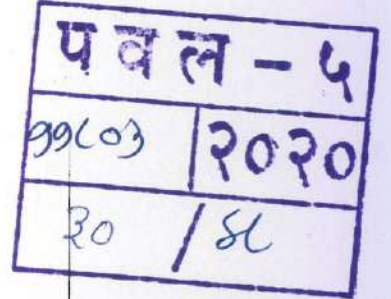 प व ल - ५
११८०३ २०२०
३० / ४८